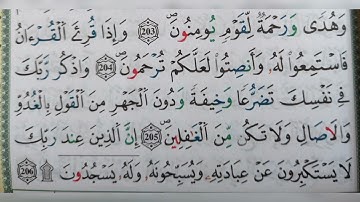 وَهُدًى وَرَحْمَةٌ لِّقَوْمٍ يُؤْمِنُونَ ۝203 وَإِذَا قُرِئَ الْقُرْءَانُ
فَاسْتَمِعُوا لَهُۥ وَأَنصِتُوا لَعَلَّكُمْ تُرْحَمُونَ ۝204 وَاذْكُر رَّبَّكَ
فِي نَفْسِكَ تَضَرُّعًا وَخِيفَةً وَدُونَ الْجَهْرِ مِنَ الْقَوْلِ بِالْغُدُوِّ
وَالْاٰصَالِ وَلَا تَكُن مِّنَ الْغَٰفِلِينَ ۝205 إِنَّ الَّذِينَ عِندَ رَبِّكَ
لَا يَسْتَكْبِرُونَ عَنْ عِبَادَتِهِۦ وَيُسَبِّحُونَهُۥ وَلَهُۥ يَسْجُدُونَ ۩ ۝206